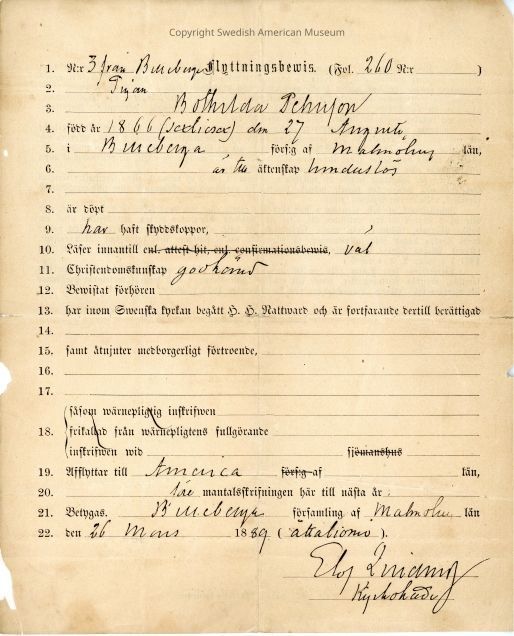 Copyright Swedish American Museum
1. N:r 3 från Billeberga Flyttningsbewis. (Fol. 260 N:r )
2. Pigan
3. Bothilda Pehrson
4. född år 1866 (sextiosex) den 27 Augusti
5. i Billeberga förs:g af Malmöhus län,
6. är till äktenskap hinderlös
7.
8. är döpt
9. har haft skyddskoppor,
10. Läser innantill enl. attest hit, enl. confirmationsbewis, väl
11. Christendomskunskap godkänd
12. Bewistat förhören
13. har inom Swenska kyrkan begått H. H. Nattward och är fortfarande dertill berättigad
14.
15. samt åtnjuter medborgerligt förtroende,
16.
17.
såsom wärnepligtig inskrifwen
18. frikallad från wärnepligtens fullgörande
inskrifwen wid sjömanshus
19. Afflyttar till America förs:g af län,
20. före mantalsskrifningen här till nästa år.
21. Betygas. Billeberga församling af Malmöhus län
22. den 26 Mars 1889 (åttationio).
Kyrkoherde